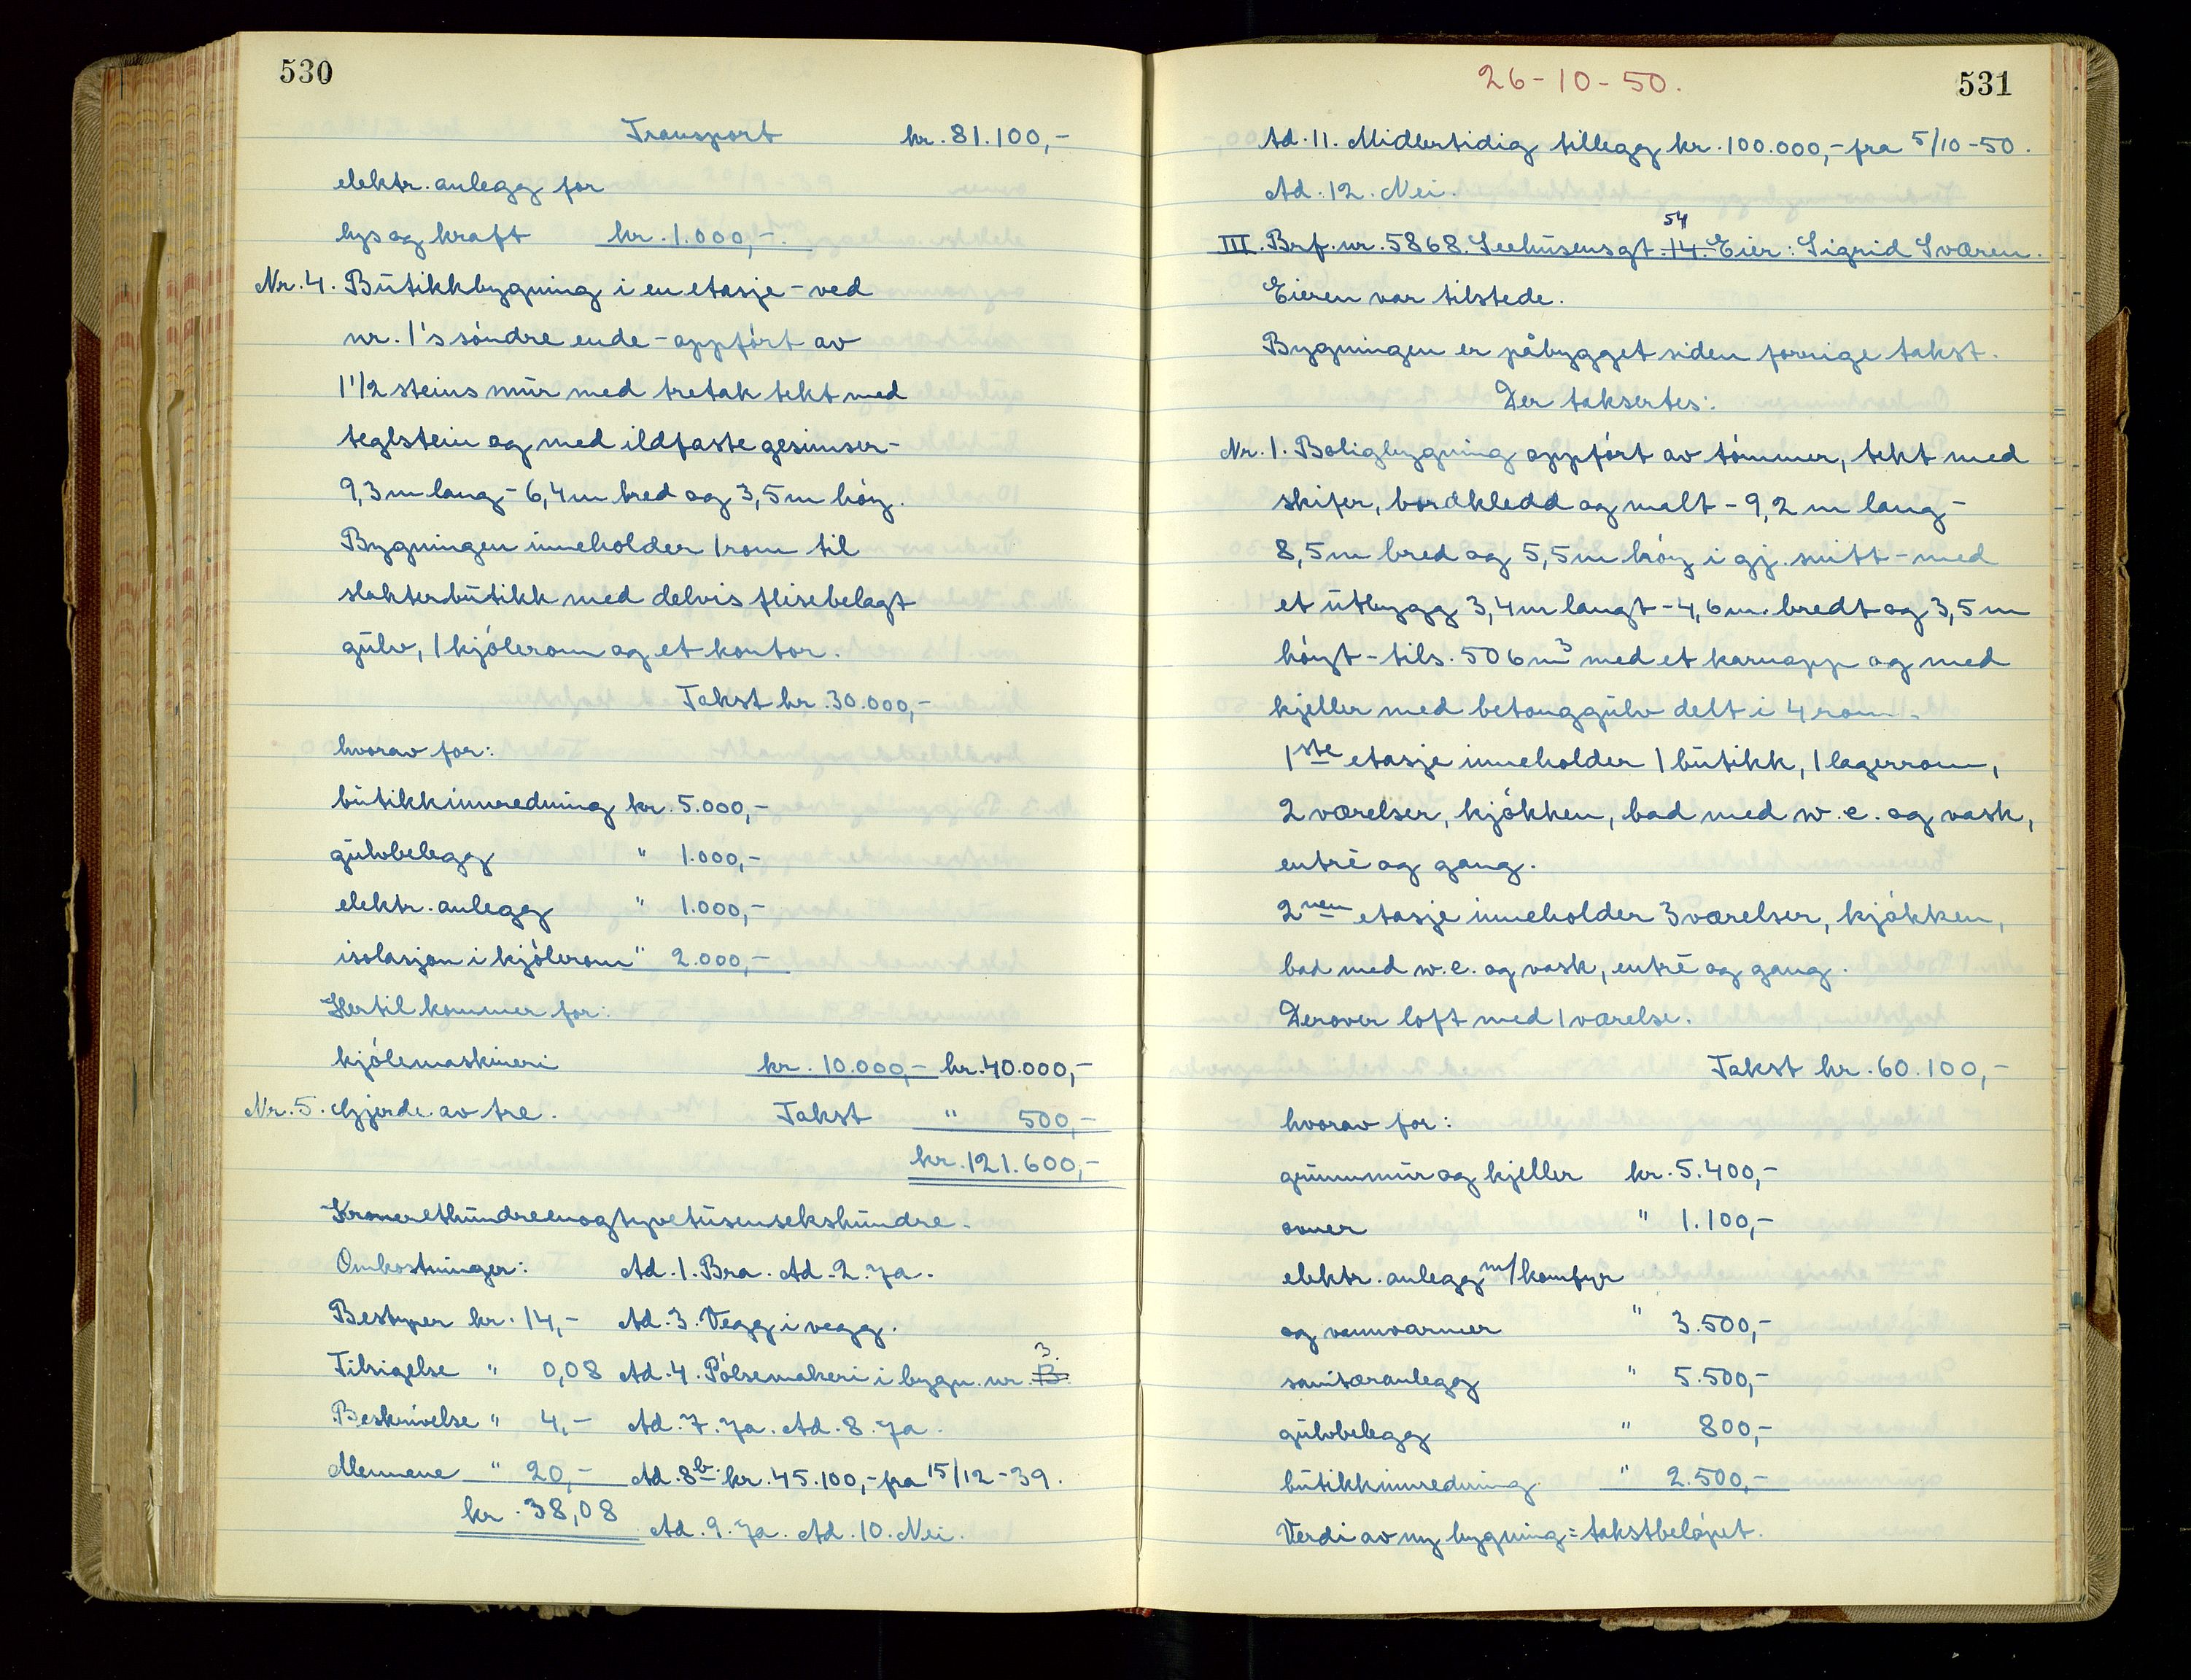 530
Transport kr. 81.100,-
elektr. anlegg for
lys og kraft kr. 1.000,-
Nr. 4. Butikkbygning i en etasje - ved
nr. 1's søndre ende - oppført av
1 1/2 steins mur med tretak tekt med
teglstein og med ildfaste gesimser -
9,3 m lang - 6,4 m bred og 3,5 m høy.
Bygningen inneholder 1 rom til
slakterbutikk med delvis flisebelagt
gulv, 1 kjølerom og et kontor.
Takst kr. 30.000,-
hvorav for:
butikkinnredning kr. 5.000,-
gulvbelegg " 1.000,-
elektr. anlegg " 1.000,-
isolasjon i kjølerom " 2.000,-
Hertil kommer for:
kjølemaskineri kr. 10.000,- kr. 40.000,-
Nr. 5. Gjerde av tre. Takst " 500,-
kr. 121.600,-
Kroneretthundreenogtyvetusensekshundre.
Omkostninger: Ad. 1. Bra. Ad. 2. Ja.
Bestyrer kr. 14,- Ad. 3. Vegg i vegg.
Tilsigelse " 0,08 Ad. 4. Pølsemakeri i bygn. nr. 3.
Beskrivelse " 4,- Ad. 7. Ja. Ad. 8. Ja.
Mennene " 20,- Ad. 8b. kr. 45.100,- fra 15/12-39.
kr. 38,08 Ad. 9. Ja. Ad. 10. Nei.
26-10-50.
531
Ad. 11. Midlertidig tillegg kr. 100.000,- fra 5/10-50.
Ad. 12. Nei.
54
III. Brf. nr. 5868. Seehusensgt. 14. Eier: Sigrid Sværen.
Eieren var tilstede.
Bygningen er påbygget siden forrige takst.
Der taksertes:
Nr. 1. Boligbygning oppført av tømmer, tekt med
skifer, bordkledd og malt - 9,2 m lang -
8,5 m bred og 5,5 m høy i gj. snitt - med
et utbygg 3,4 m langt - 4,6 m. bredt og 3,5 m
høyt - tils. 506 m³ med et karnapp og med
kjeller med betonggulv delt i 4 rom.
1ste etasje inneholder 1 butikk, 1 lagerrom,
2 værelser, kjøkken, bad med w.c. og vask,
entré og gang.
2nen etasje inneholder 3 værelser, kjøkken,
bad med w.c. og vask, entré og gang.
Derover loft med 1 værelse.
Takst kr. 60.100,-
hvorav for:
grunnmur og kjeller kr. 5.400,-
ovner " 1.100,-
elektr. anlegg m/komfyr
og vannvarmer " 3.500,-
sanitæranlegg " 5.500,-
gulvbelegg " 800,-
butikkinnredning " 2.500,-
Verdi av ny bygning = takstbeløpet.